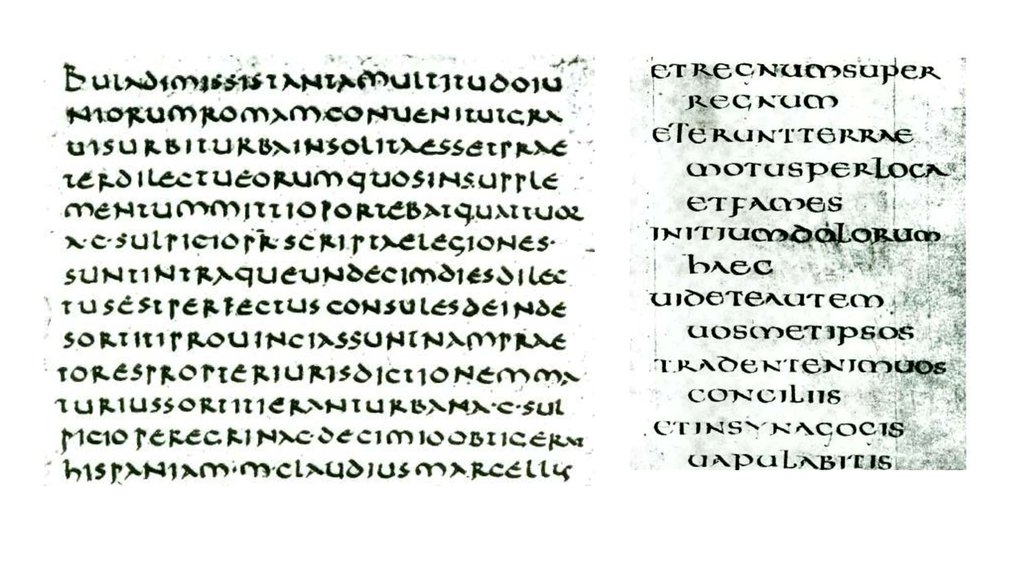 BULADIMISSISTANTAMULTITUDOIU
NIORUMROMAMCONUENITUTGRA
UISURBITURBAINSOLITAESSETPRAE
TERDILECTUEORUMQUOSINSUPPLE
MENTUMMITTIOPORTEBATQUATTUOR
A·C·SULPICIOPR·SCRIPTAELEGIONES·
SUNTINTRAQUEUNDECIMDIESDILEC
TUSESTPERFECTUSCONSULESDEINDE
SORTITIPROUINCIASSUNTNAMPRAE
TORESPROPTERIURISDICTIONEMMA
TURIUSSORTITIERANTURBANA·C·SUL
PICIOPEREGRINAC·DECIMIOOBTIGERAT
HISPANIAM·M·CLAUDIUSMARCELLUS
ETREGNUMSUPER
REGNUM
ETERUNTTERRAE
MOTUSPERLOCA
ETFAMES
INITIUMDOLORUM
HAEC
UIDETEAUTEM
UOSMETIPSOS
TRADENTENIMUOS
CONCILIIS
ETINSYNAGOGIS
UAPULABITIS